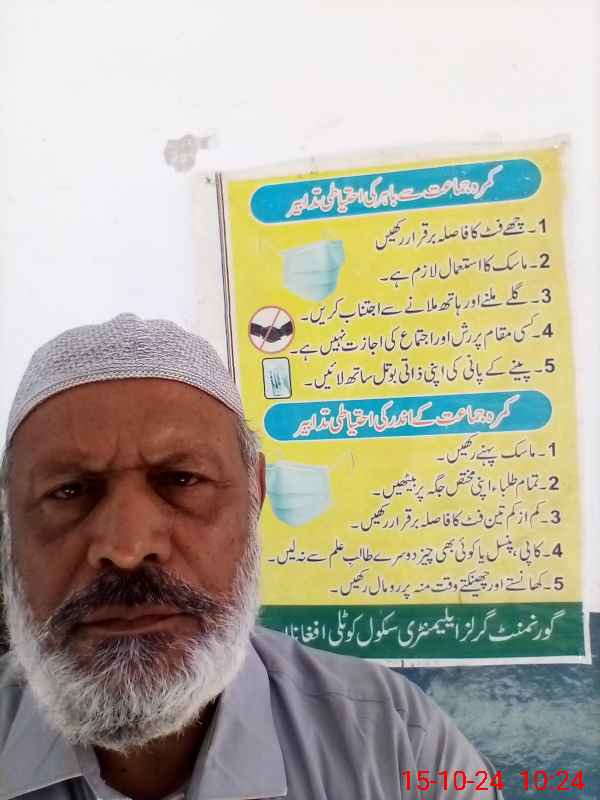 کمرہ جماعت سے باہر کی احتیاطی تدابیر
1۔ چھے فٹ کا فاصلہ برقرار رکھیں
2۔ ماسک کا استعمال لازم ہے۔
3۔ گلے ملنے اور ہاتھ ملانے سے اجتناب کریں۔
4۔ کسی مقام پر رش اور اجتماع کی اجازت نہیں ہے۔
5۔ پینے کے پانی کی اپنی ذاتی بوتل ساتھ لائیں۔
کمرہ جماعت کے اندر کی احتیاطی تدابیر
1۔ ماسک پہنے رکھیں۔
2۔ تمام طلباء اپنی مختص جگہ پر بیٹھیں۔
3۔ کم از کم تین فٹ کا فاصلہ برقرار رکھیں۔
4۔ کاپی، پنسل یا کوئی بھی چیز دوسرے طالب علم سے نہ لیں۔
5۔ کھانستے اور چھینکتے وقت منہ پر رومال رکھیں۔
گورنمنٹ گرلز ایلیمنٹری سکول کوٹلی افغاناں
15-10-24 10:24